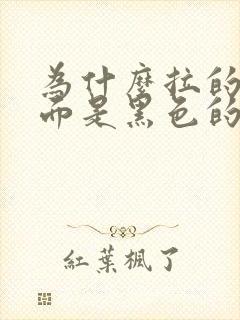 為什麼拉的
而是黑色的
紅葉楓了